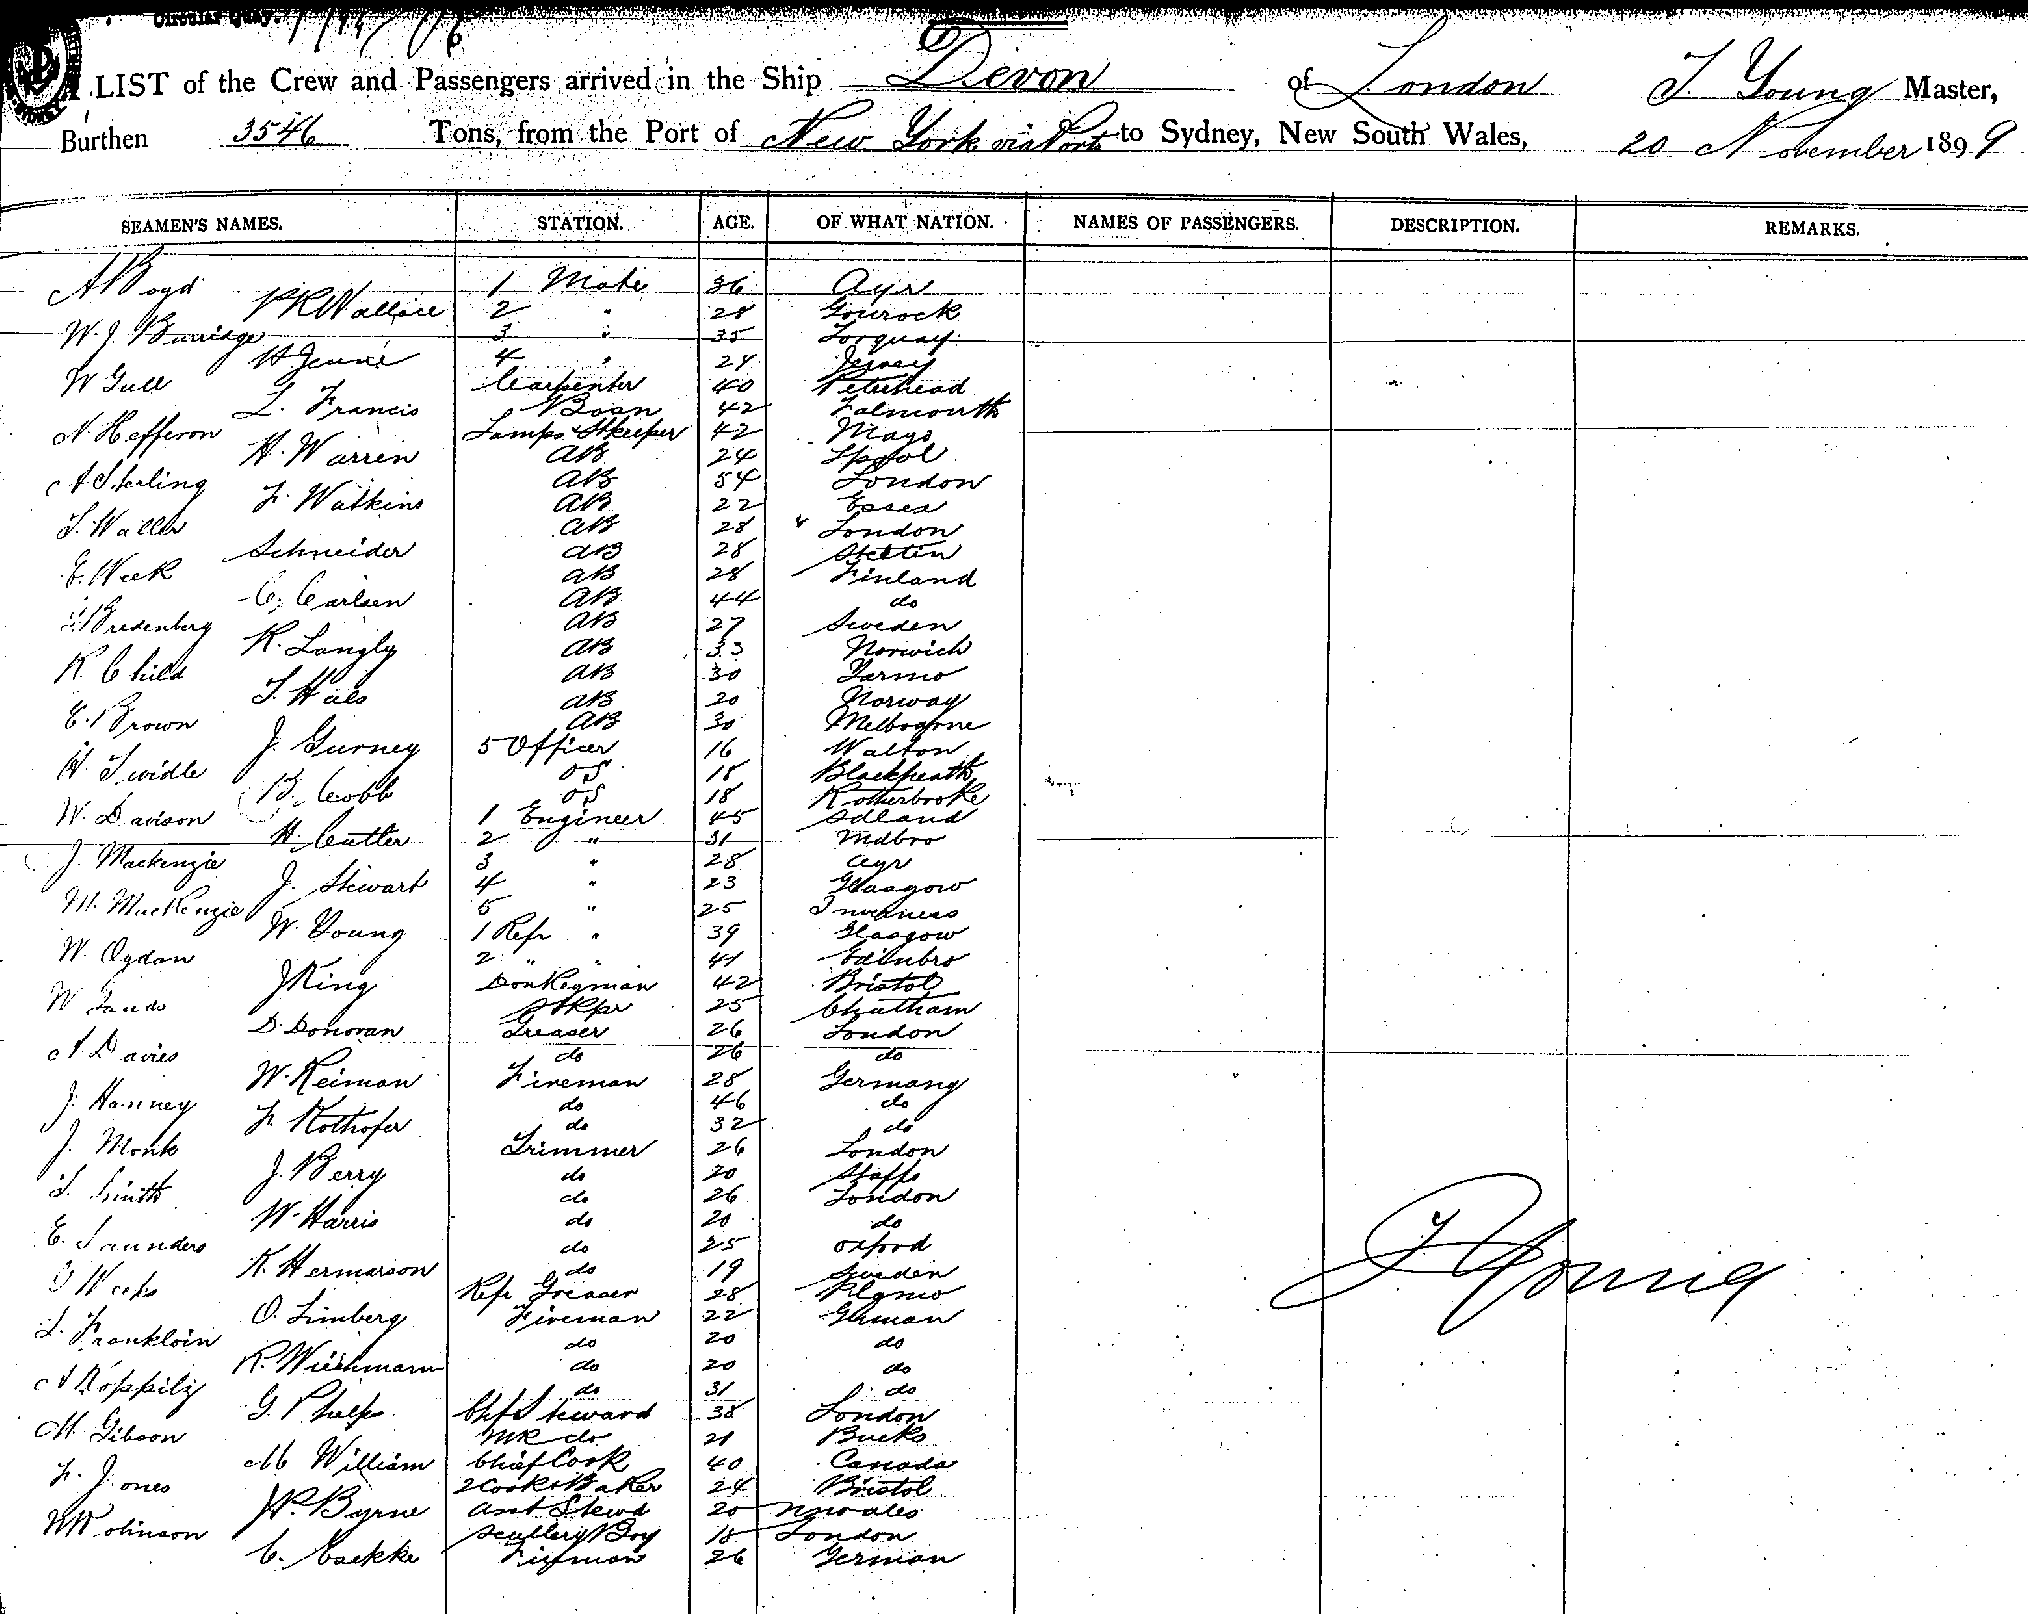 Circular Quay.
LIST of the Crew and Passengers arrived in the Ship Devon of London T Young Master,
Burthen 3546 Tons, from the Port of New York via Ports to Sydney, New South Wales, 20 November 1899
SEAMEN'S NAMES. STATION. AGE. OF WHAT NATION. NAMES OF PASSENGERS. DESCRIPTION. REMARKS.
A Boyd 1 Mate 36 Ayr
P R Wallace 2 " 28 Gourock
W. J. Burridge 3 " 35 Torquay
H Jeune 4 " 24 Jersey
W Gull Carpenter 40 Peterhead
L. Francis Bosn 42 Falmouth
N Hefferon Lamps & Stkeeper 42 Mayo
H. Warren AB 24 Lpool
A Sterling AB 54 London
F. Watkins AB 22 Essex
T. Waller AB 28 London
Schneider AB 28 Stettin
E. Week AB 28 Finland
C. Carlsen AB 44 do
Bredenberg AB 27 Sweden
R. Langly AB 33 Norwich
R. Child AB 30 Yarmo
T. Hals AB 20 Norway
E. Brown AB 30 Melbourne
J. Gurney 5 Officer 16 Walton
H. Twidle OS 18 Blackheath
B. Cobb OS 18
W. Davison 1 Engineer 45 Sdland
H. Cutler 2 " 31 Mdbro
J. Mackenzie 3 " 28 Ayr
J. Stewart 4 " 23 Glasgow
M. MacKenzie 5 " 25 Inverness
W. Young 1 Refr " 39 Glasgow
W. Ogdon 2 " " 41 Edinbro
J King Donkeyman 42 Bristol
W Sands Stkpr 25 Chatham
D. Donovan Greaser 26 London
A Davies do 26 do
W. Reiman Fireman 28 Germany
J. Hanney do 46 do
F. Rothofer do 32 do
J. Monk Trimmer 26 London
J. Berry do 20 Staffs
T. Smith do 26 London
W. Harris do 20 do
E. Saunders do 25 Oxford
K. Hermarson do 19 Sweden
Refr Greaser 28 Plymo
O. Limberg Fireman 22 German
Frankloin do 20 do
R. Wiechmann do 20 do
A do 31 do
G. Phelps Chf Steward 38 London
M. Gibson MR do 21 Bucks
M William Chief Cook 40 Canada
F. Jones 2 Cook & Baker 24 Bristol
P. Byrne Asst Stewd 20 N Wales
W Rolinson Scullery Boy 18 London
C. Fireman 26 German
T Young